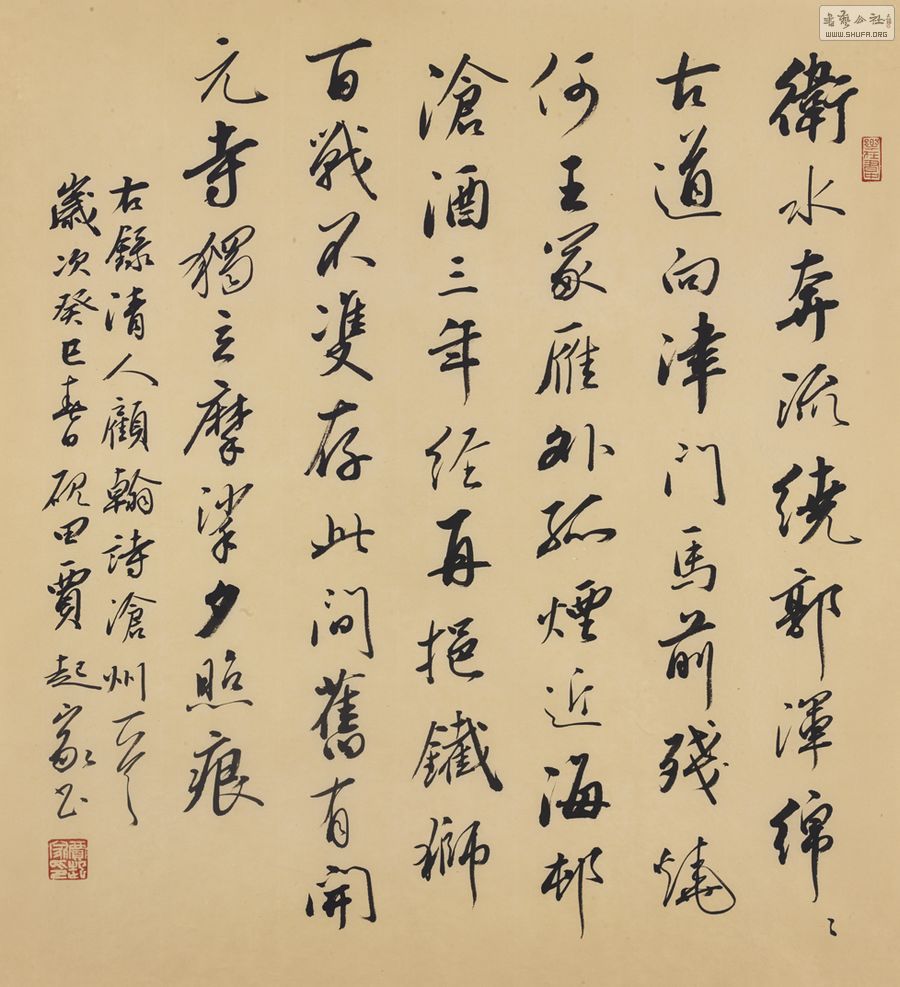 衛水奔流繞郭渾綿〻
古道向津門馬前殘燒
何王冢雁外孤煙近海邨
滄酒三年經再挹鐵獅
百戰不雙存此間舊有開
元寺獨立摩挲夕照痕
右錄清人顧翰詩滄州一首
歲次癸巳春日硯田賈起家書
書藝公社
WWW.SHUFA.ORG